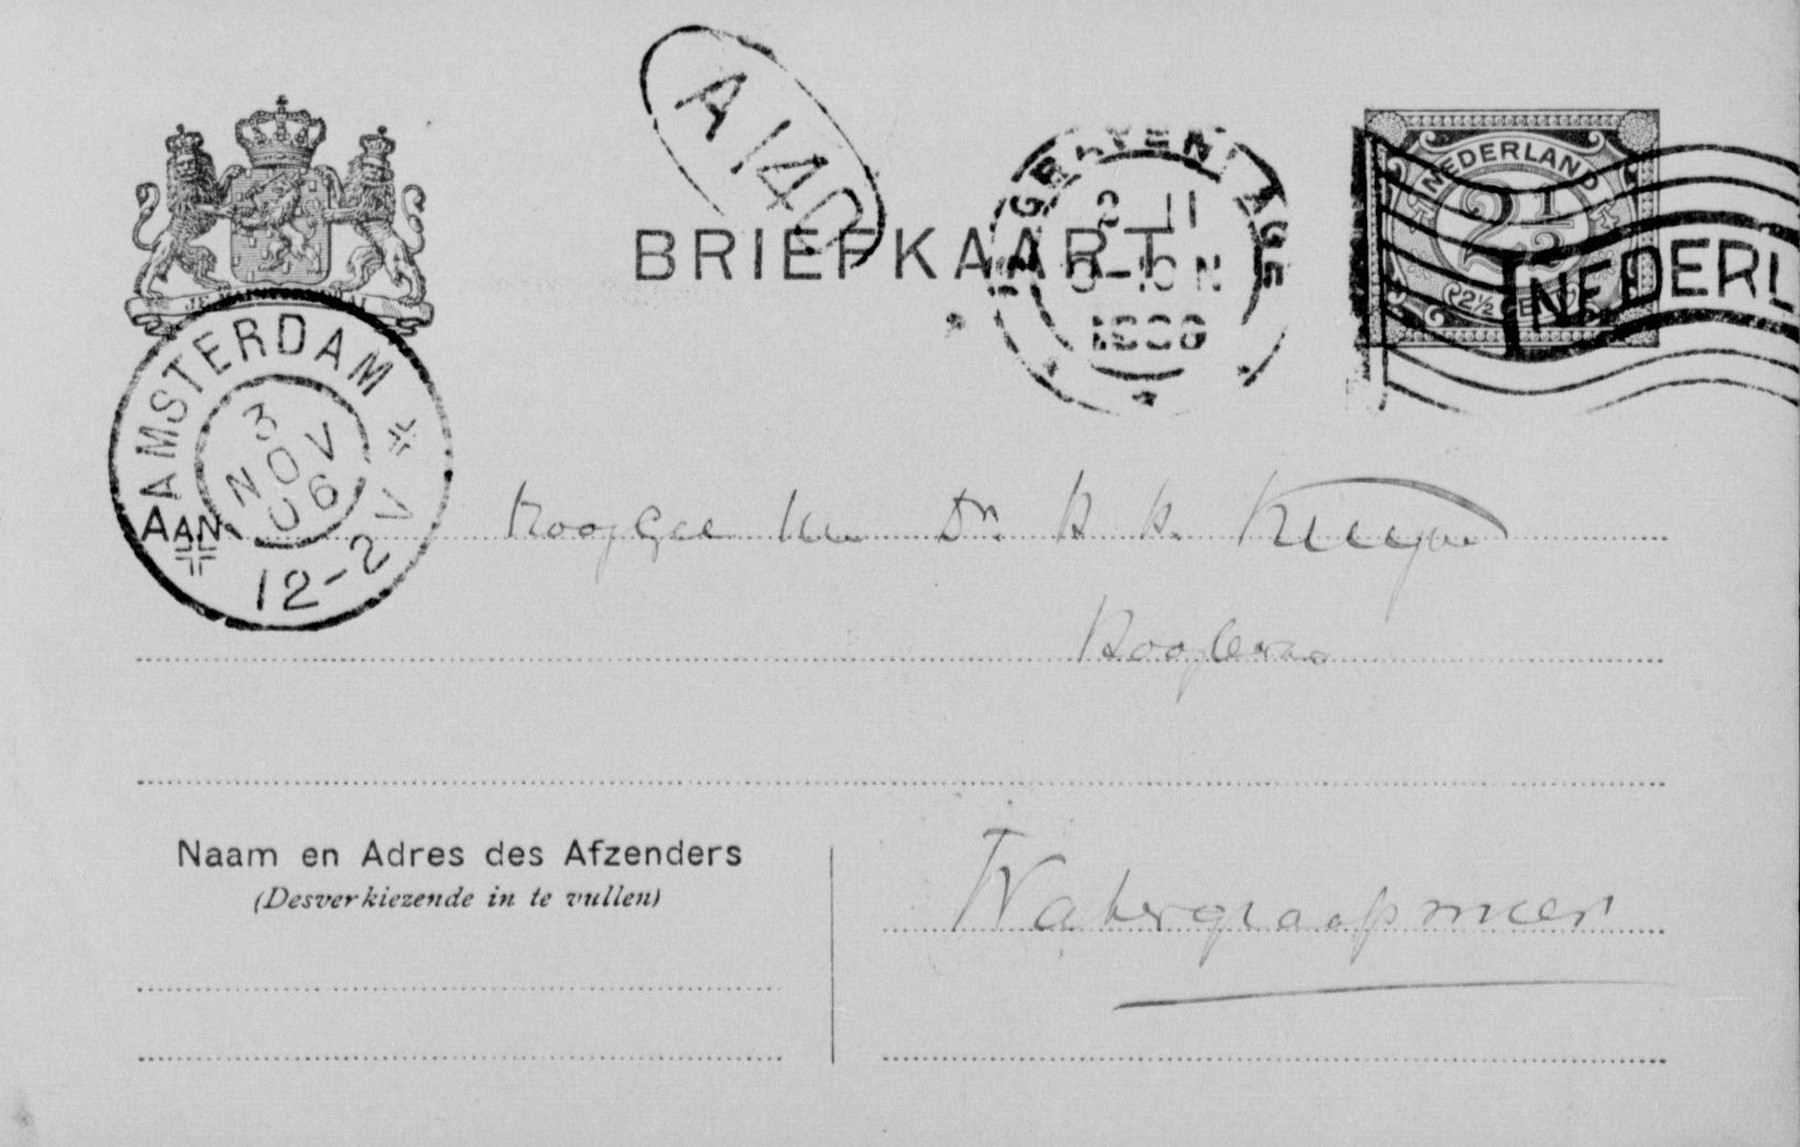 A 140
BRIEFKAART
'S GRAVENHAGE
2 11
10 N
NEDERLAND
2½
2½ CENT
NEDERL
AMSTERDAM
3
NOV
06
12-2V
AAN
Hooggel Dr. H. H. Kuyper
Hoogleeraar
Watergraafsmeer
Naam en Adres des Afzenders
(Desverkiezende in te vullen)